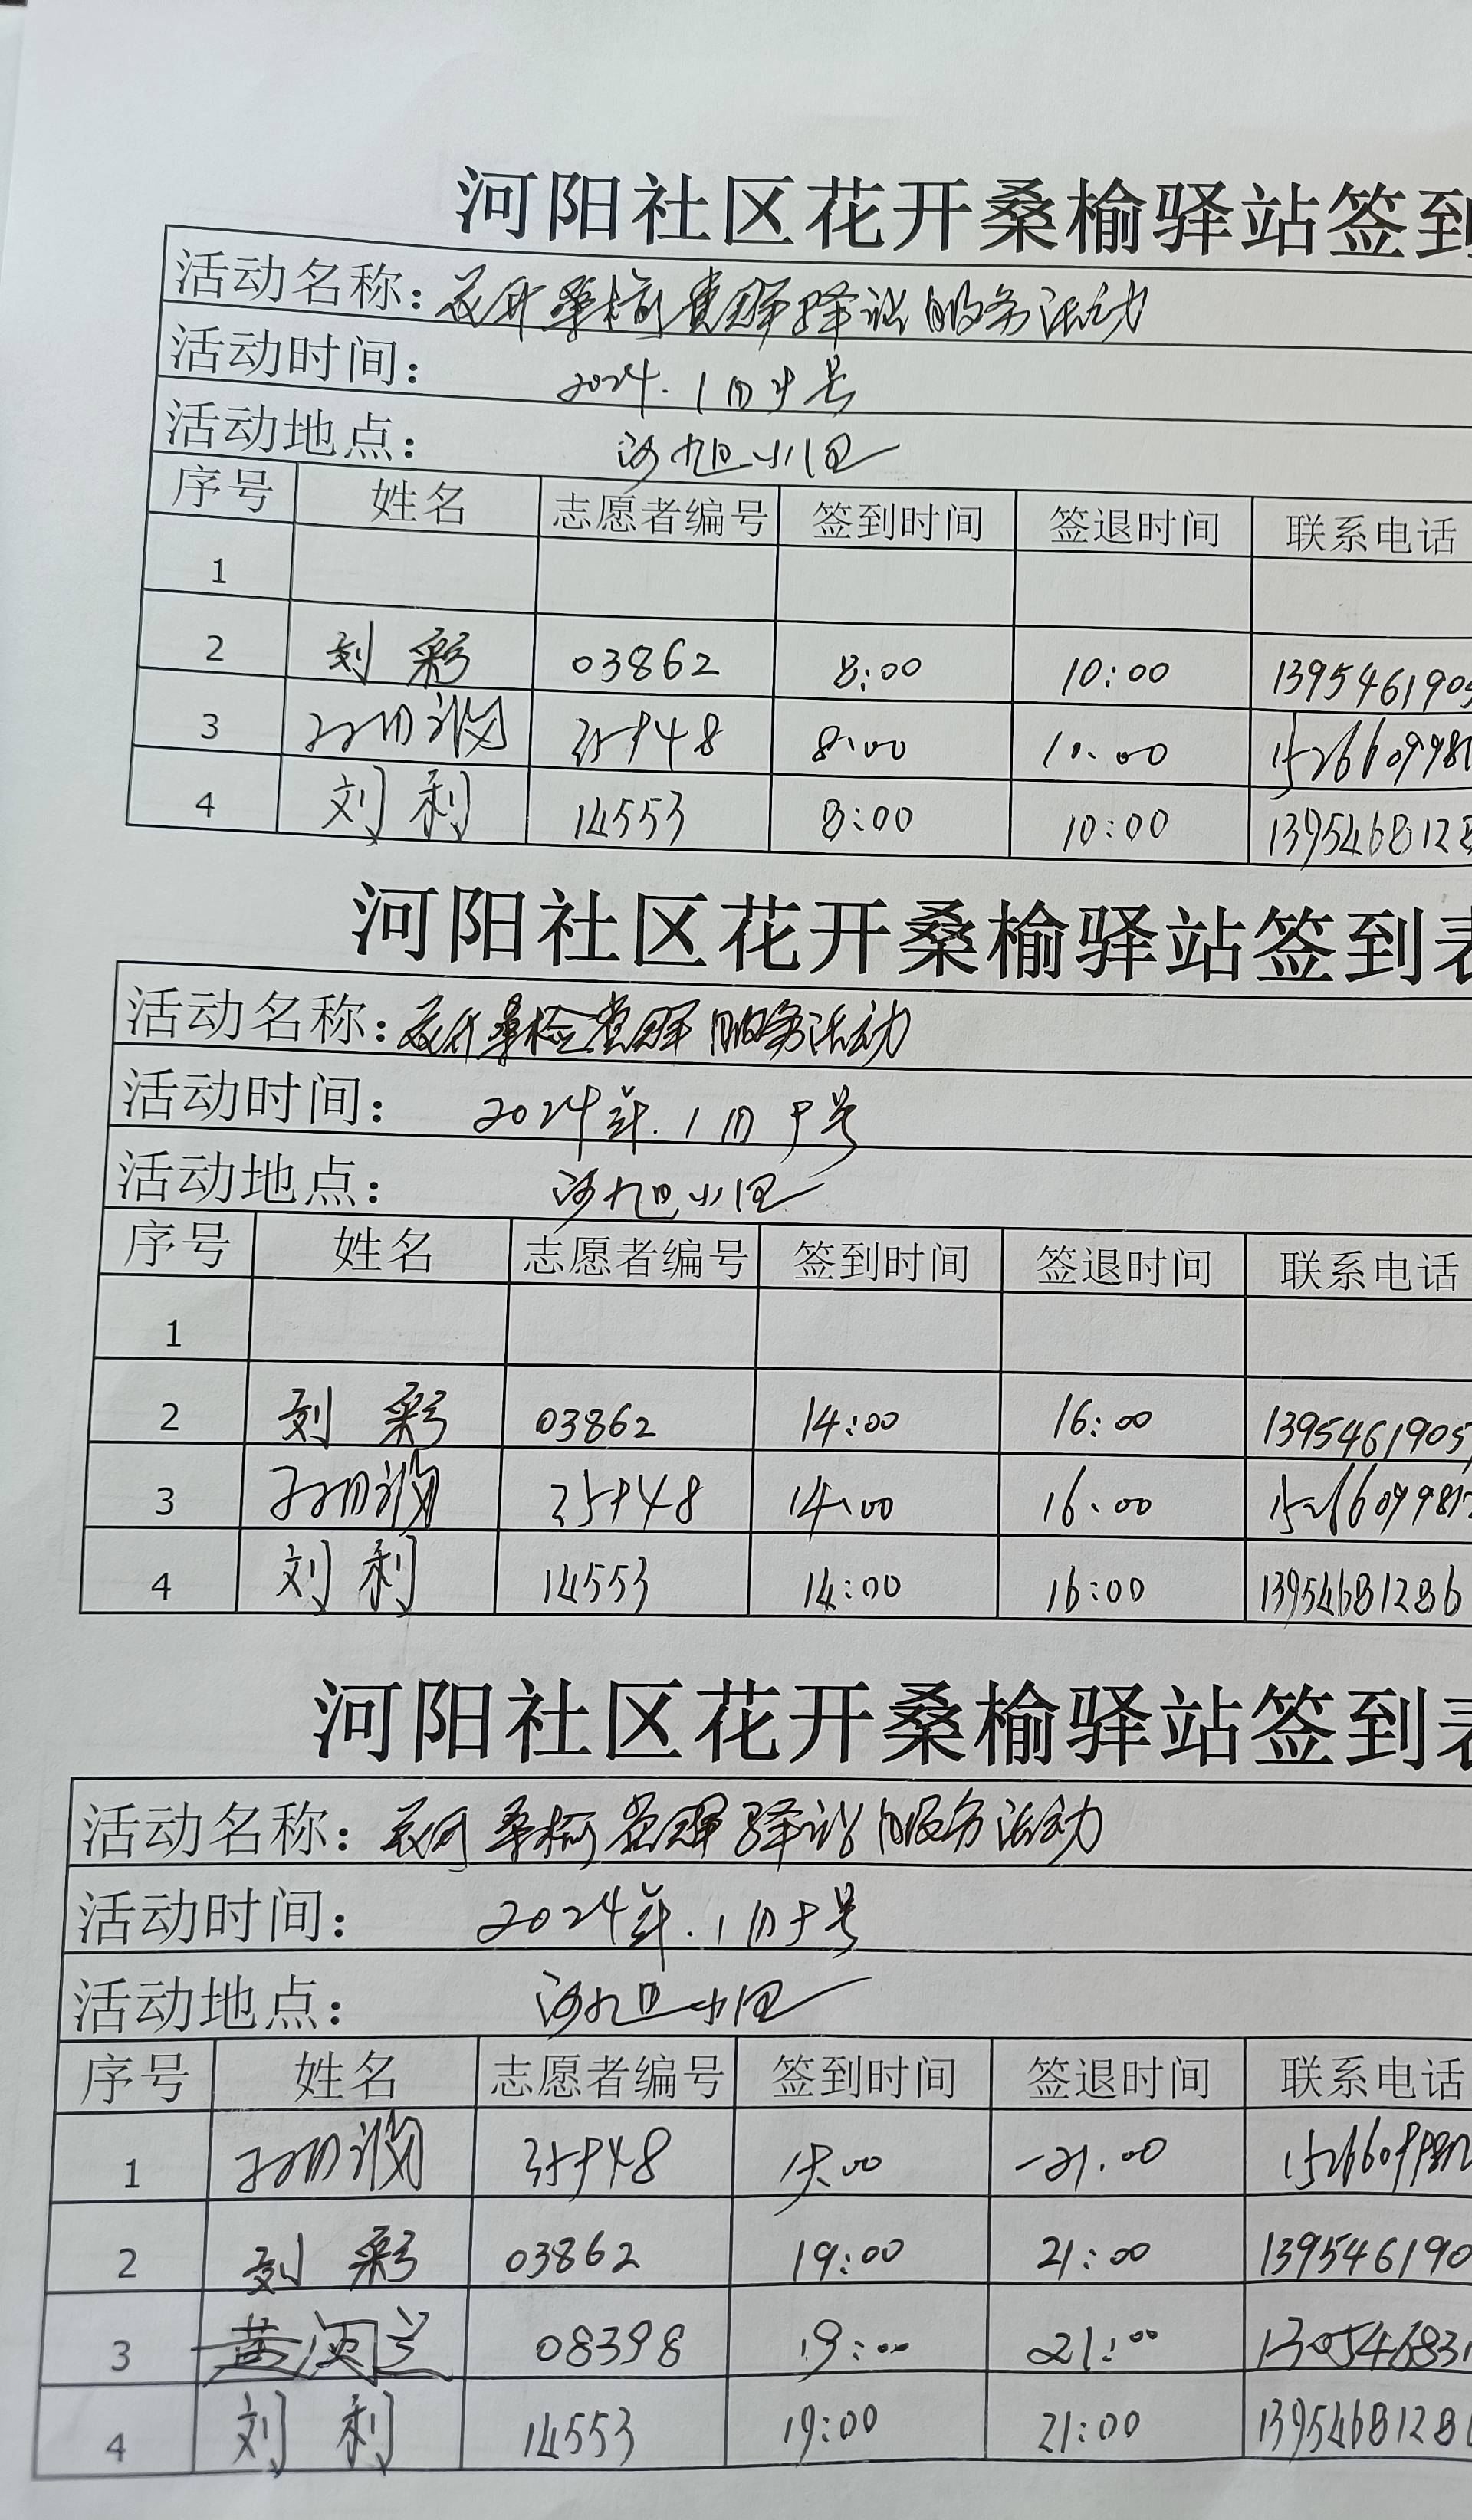 河阳社区花开桑榆驿站签到
活动名称：花开桑榆 驿站服务活动
活动时间：2024.1月 号
活动地点：河旭小区
序号 姓名 志愿者编号 签到时间 签退时间 联系电话
1
2 刘彩 03862 8:00 10:00 1395461905
3 8:00 10:00
4 刘利 14553 8:00 10:00 1395468128
河阳社区花开桑榆驿站签到表
活动名称：花开桑榆 服务活动
活动时间：2024年.1月 号
活动地点：河旭小区
序号 姓名 志愿者编号 签到时间 签退时间 联系电话
1
2 刘彩 03862 14:00 16:00 1395461905
3 14:00 16:00
4 刘利 14553 14:00 16:00 13954681286
河阳社区花开桑榆驿站签到表
活动名称：花开桑榆 驿站服务活动
活动时间：2024年.1月 号
活动地点：河旭小区
序号 姓名 志愿者编号 签到时间 签退时间 联系电话
1 21.00
2 刘彩 03862 19:00 21:00 139546190
3 08398 19:00 21:00 130546831
4 刘利 14553 19:00 21:00 1395468128